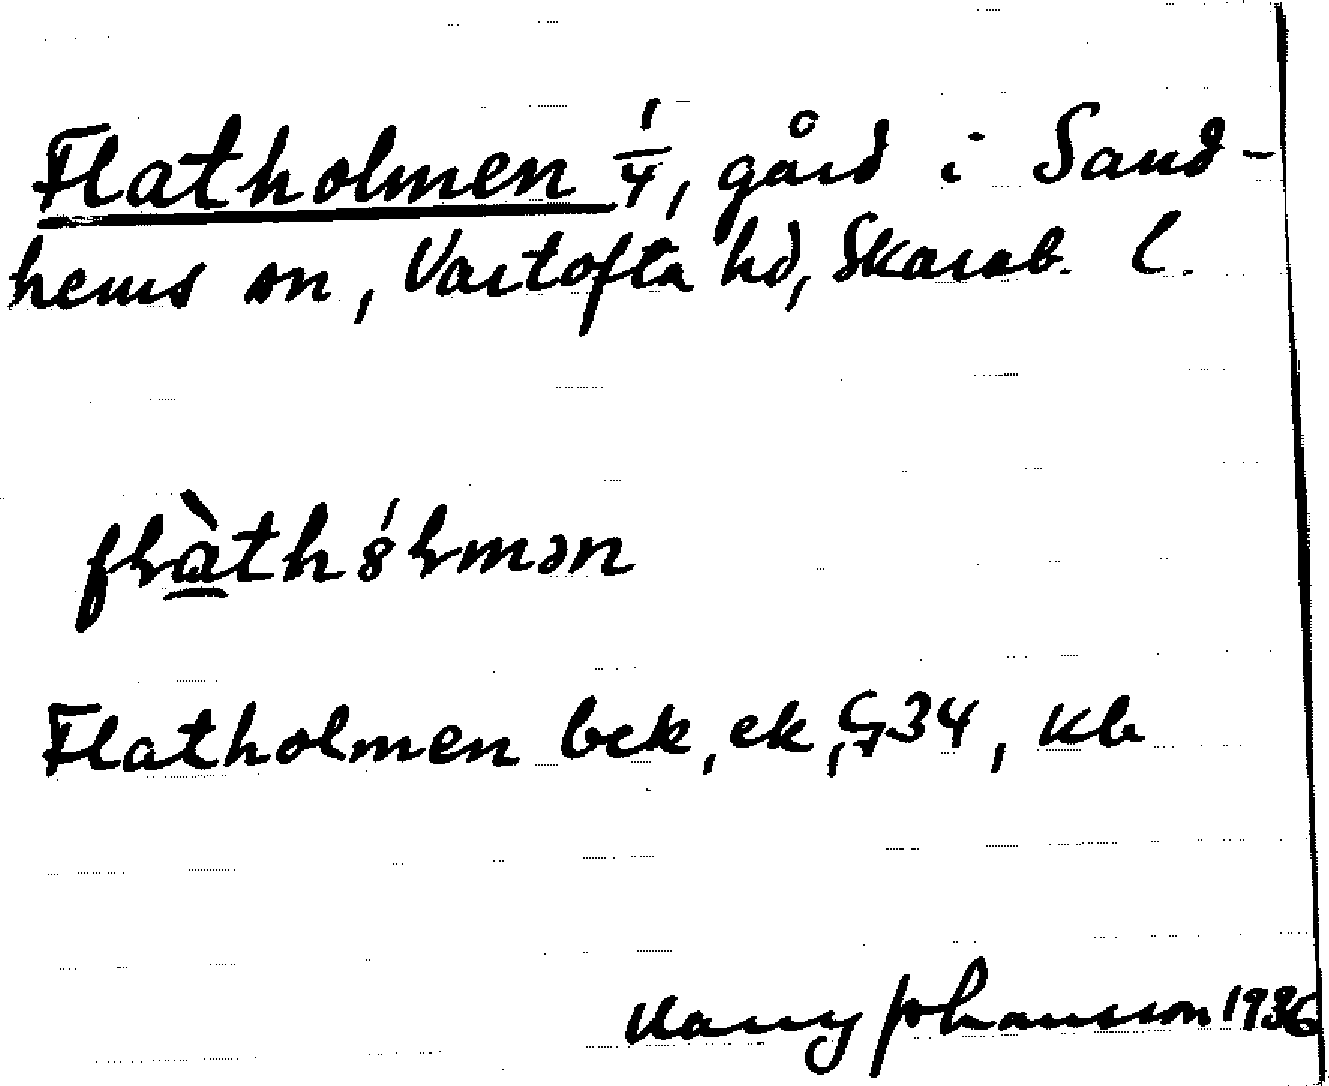 Flatholmen 1/4, gård i Sand-
hems sn, Vartofta hd, Skarab. l.
flàthólmən
Flatholmen bek, ek, G34, kb
Johansson 1936